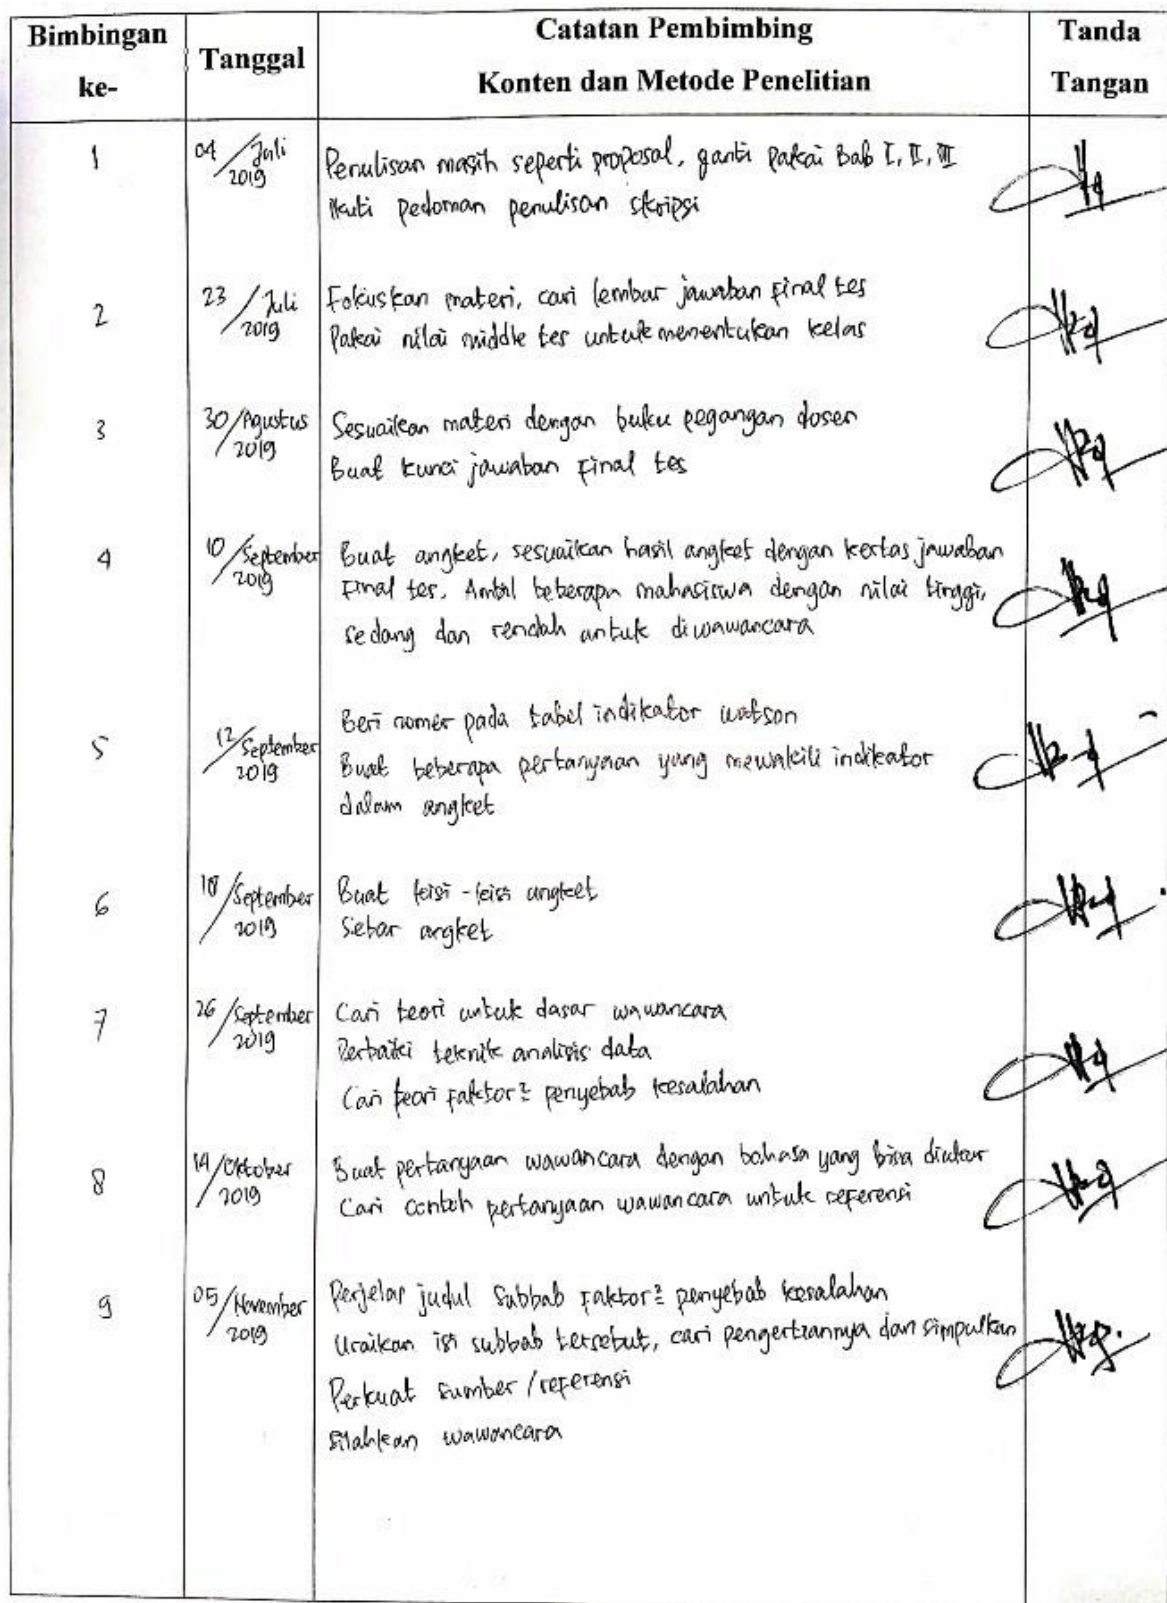 Bimbingan ke-
Tanggal
Catatan Pembimbing
Konten dan Metode Penelitian
Tanda Tangan
1
04/Juli
2019
Penulisan masih seperti proposal, ganti pakai Bab I, II, III
Ikuti pedoman penulisan skripsi
2
23/Juli
2019
Fokuskan materi, cari lembar jawaban final tes
Pakai nilai middle tes untuk menentukan kelas
3
30/Agustus
2019
Sesuaikan materi dengan buku pegangan dosen
Buat kunci jawaban final tes
4
10/September
2019
Buat angket, sesuaikan hasil angket dengan kertas jawaban
Final tes. Ambil beberapa mahasiswa dengan nilai tinggi,
sedang dan rendah untuk diwawancara
5
12/September
2019
Beri nomer pada tabel indikator watson
Buat beberapa pertanyaan yang mewakili indikator
dalam angket
6
18/September
2019
Buat kisi-kisi angket
Sebar angket
7
26/September
2019
Cari teori untuk dasar wawancara
Perbaiki teknik analisis data
Cari teori faktor² penyebab kesalahan
8
14/Oktober
2019
Buat pertanyaan wawancara dengan bahasa yang bisa diukur
Cari contoh pertanyaan wawancara untuk referensi
9
05/November
2019
Perjelas judul Subbab faktor² penyebab kesalahan
Uraikan isi subbab tersebut, cari pengertiannya dan simpulkan
Perkuat sumber/referensi
Silahkan wawancara